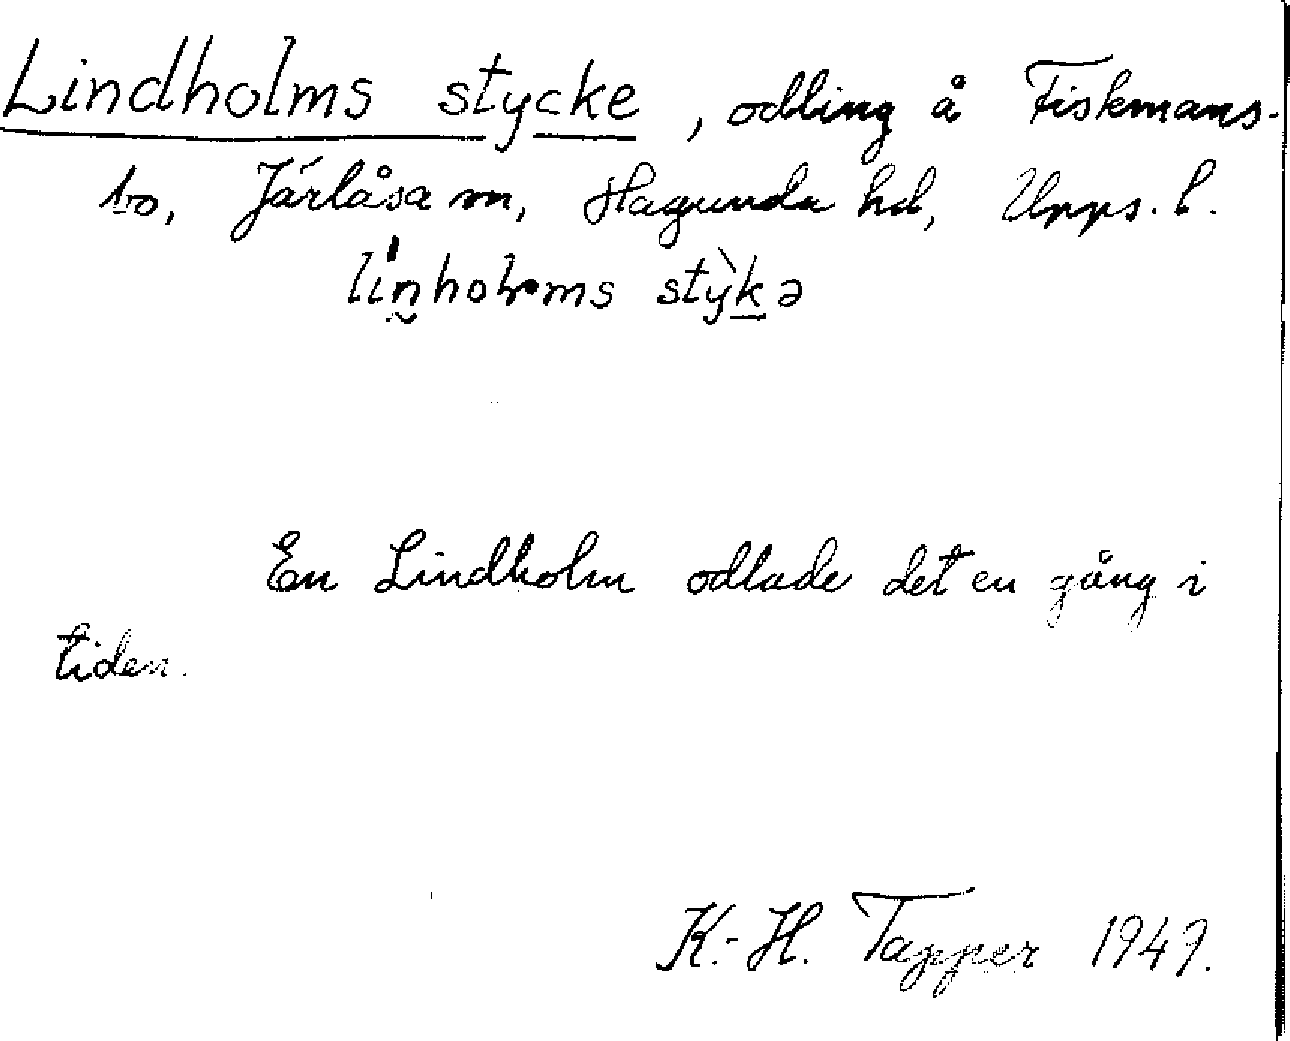 Lindholms stycke, odling å Fiskmans-
bo, Järlåsa sn, Hagunda hd, Upps. l.
En Lindholm odlade det en gång i
tiden.
K.-H. Tapper 1949.